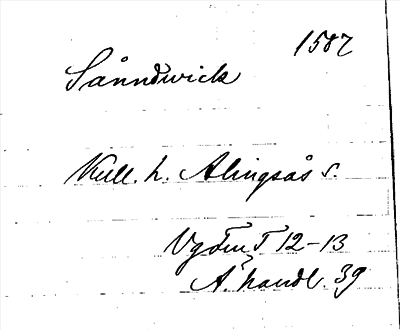 1587
Sånndwick
Kull. h. Alingsås s.
Vgöta T 12-13
Ä. handl. 39